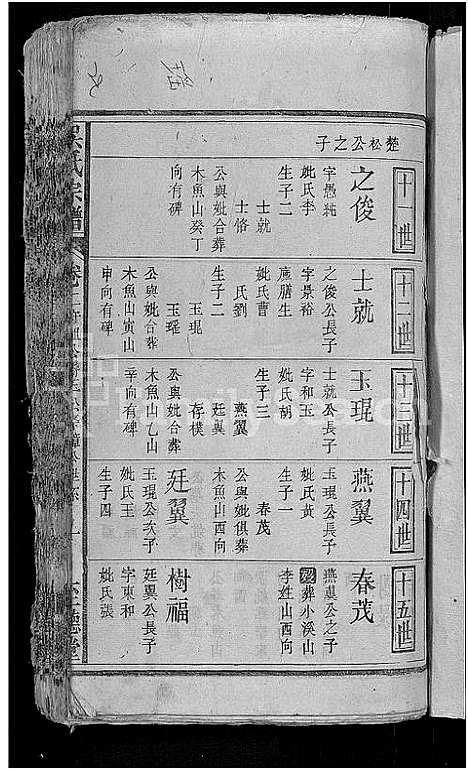 楚松公之子
十一世
之俊
字愚純
妣氏李
生子二
士就
士恪
公與妣合葬
木魚山癸丁
向有碑
十二世
士就
之俊公長子
字景裕
庶膳生
妣氏曹
氏劉
生子二
玉琨
玉瑤
公與妣合葬
木魚山寅山
申向有碑
十三世
玉琨
士就公長子
字和玉
妣氏胡
生子三
燕翼
廷與
存樸
公與妣合葬
木魚山乙山
辛向有碑
十四世
燕翼
玉琨公長子
妣氏黃
生子一
春茂
公與妣俱葬
木魚山西向
廷翼
玉琨公次子
妣氏王
生子四
十五世
春茂
燕翼公之子
葬小溪山
李姓山西向
樹福
廷與公長子
字東和
妣氏張
吳氏宗譜
卷二